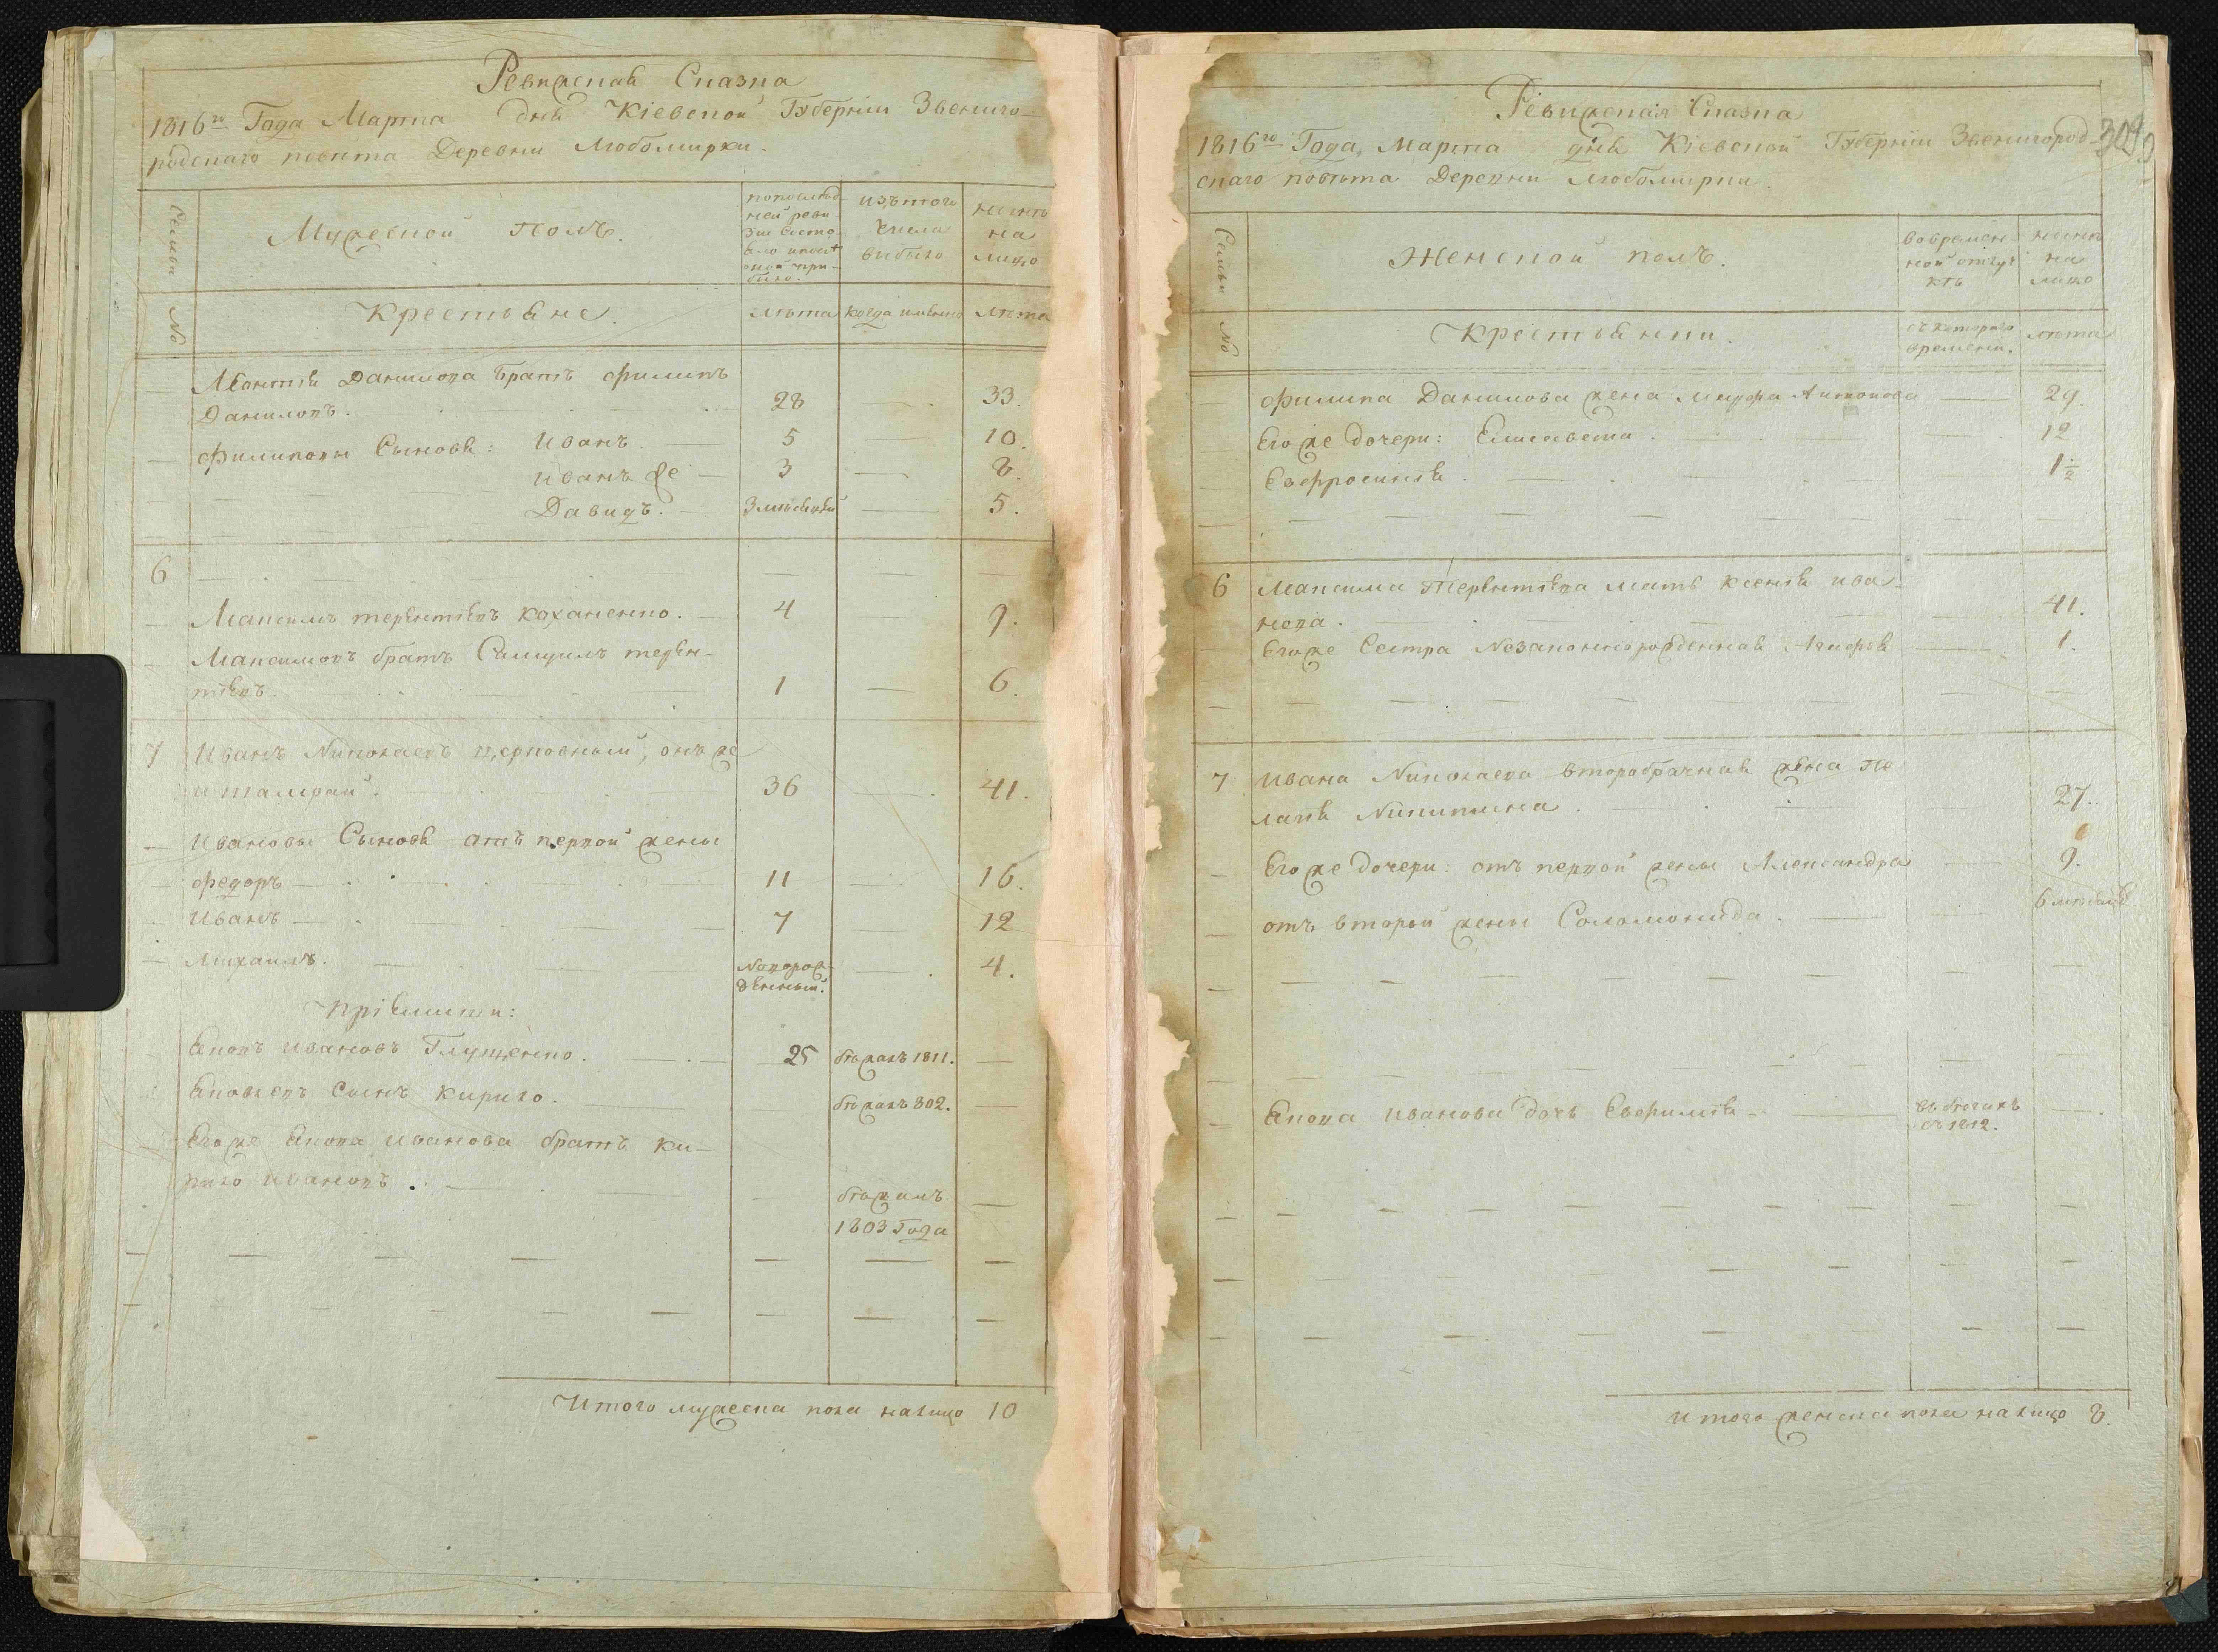 Ревизская Сказка
1816го Года Марта дня Кіевской Губерніи Звениго-
родскаго повѣта Деревни Любомирки.
Семьи
Мужеской Полъ.
по послѣд-
ней реви-
зіи состо-
яло и после
оной при-
было.
изъ того
числа
выбыло
ныне
на
лицо
№
Крестьяне.
лѣта
когда имянно
лѣта
Леонтія Данилова братъ Филипъ
Даниловъ. 28 — 33.
Филиповы Сыновья: Иванъ — 5 — 10.
Иванъ же — 3 — 8.
Давидъ. — — 5.
6
Максимъ терентіевъ Коханенко. — 4 9.
Максимовъ братъ Самуилъ терен-
тіевъ. 1 — 6.
7 Иванъ Николаевъ церковный, онъ же
и Талірай. 36 — 41.
Ивановы Сыновья отъ первой жены
Федоръ — 11 — 16.
Иванъ — 7 — 12
Михаилъ. — Новорож-
денный. — 4.
Пріемыши:
Яковъ Ивановъ Глущенко. — 25 бѣжалъ 1811. —
Яковлевъ Сынъ Кирило. — бѣжалъ 802. —
Его же Якова Иванова братъ Ки-
рило Ивановъ. — бѣжалъ —
1803 Года
Итого мужеска пола налицо 10
Ревизская Сказка
309
1816го Года, Марта дня Кіевской Губерніи Звенигород-
скаго повѣта Деревни Любомирки.
Семьи
Женской полъ.
во времен-
ной отлуч-
кѣ
ныне
на
лицо
№
Крестьянки.
съ котораго
времени.
лѣта
Филипа Данилова жена Марфа Антонова — 29.
Его же дочери: Елисавета. — 12
Евфросинія. — 1 1/2
6 Максима Терентіева мать Ксенія Ива-
нова. — 41.
Его же Сестра Незаконнорожденная — 1.
7 Ивана Николаева второбрачная жена Пе-
лагія Никитина. — 27.
Его же дочери: отъ первой жены Александра — 9.
отъ вторый жены Соломонида. — 6
Якова Иванова дочь Евфимія — въ бѣгахъ
съ 1812.
Итого женска пола налицо 8.